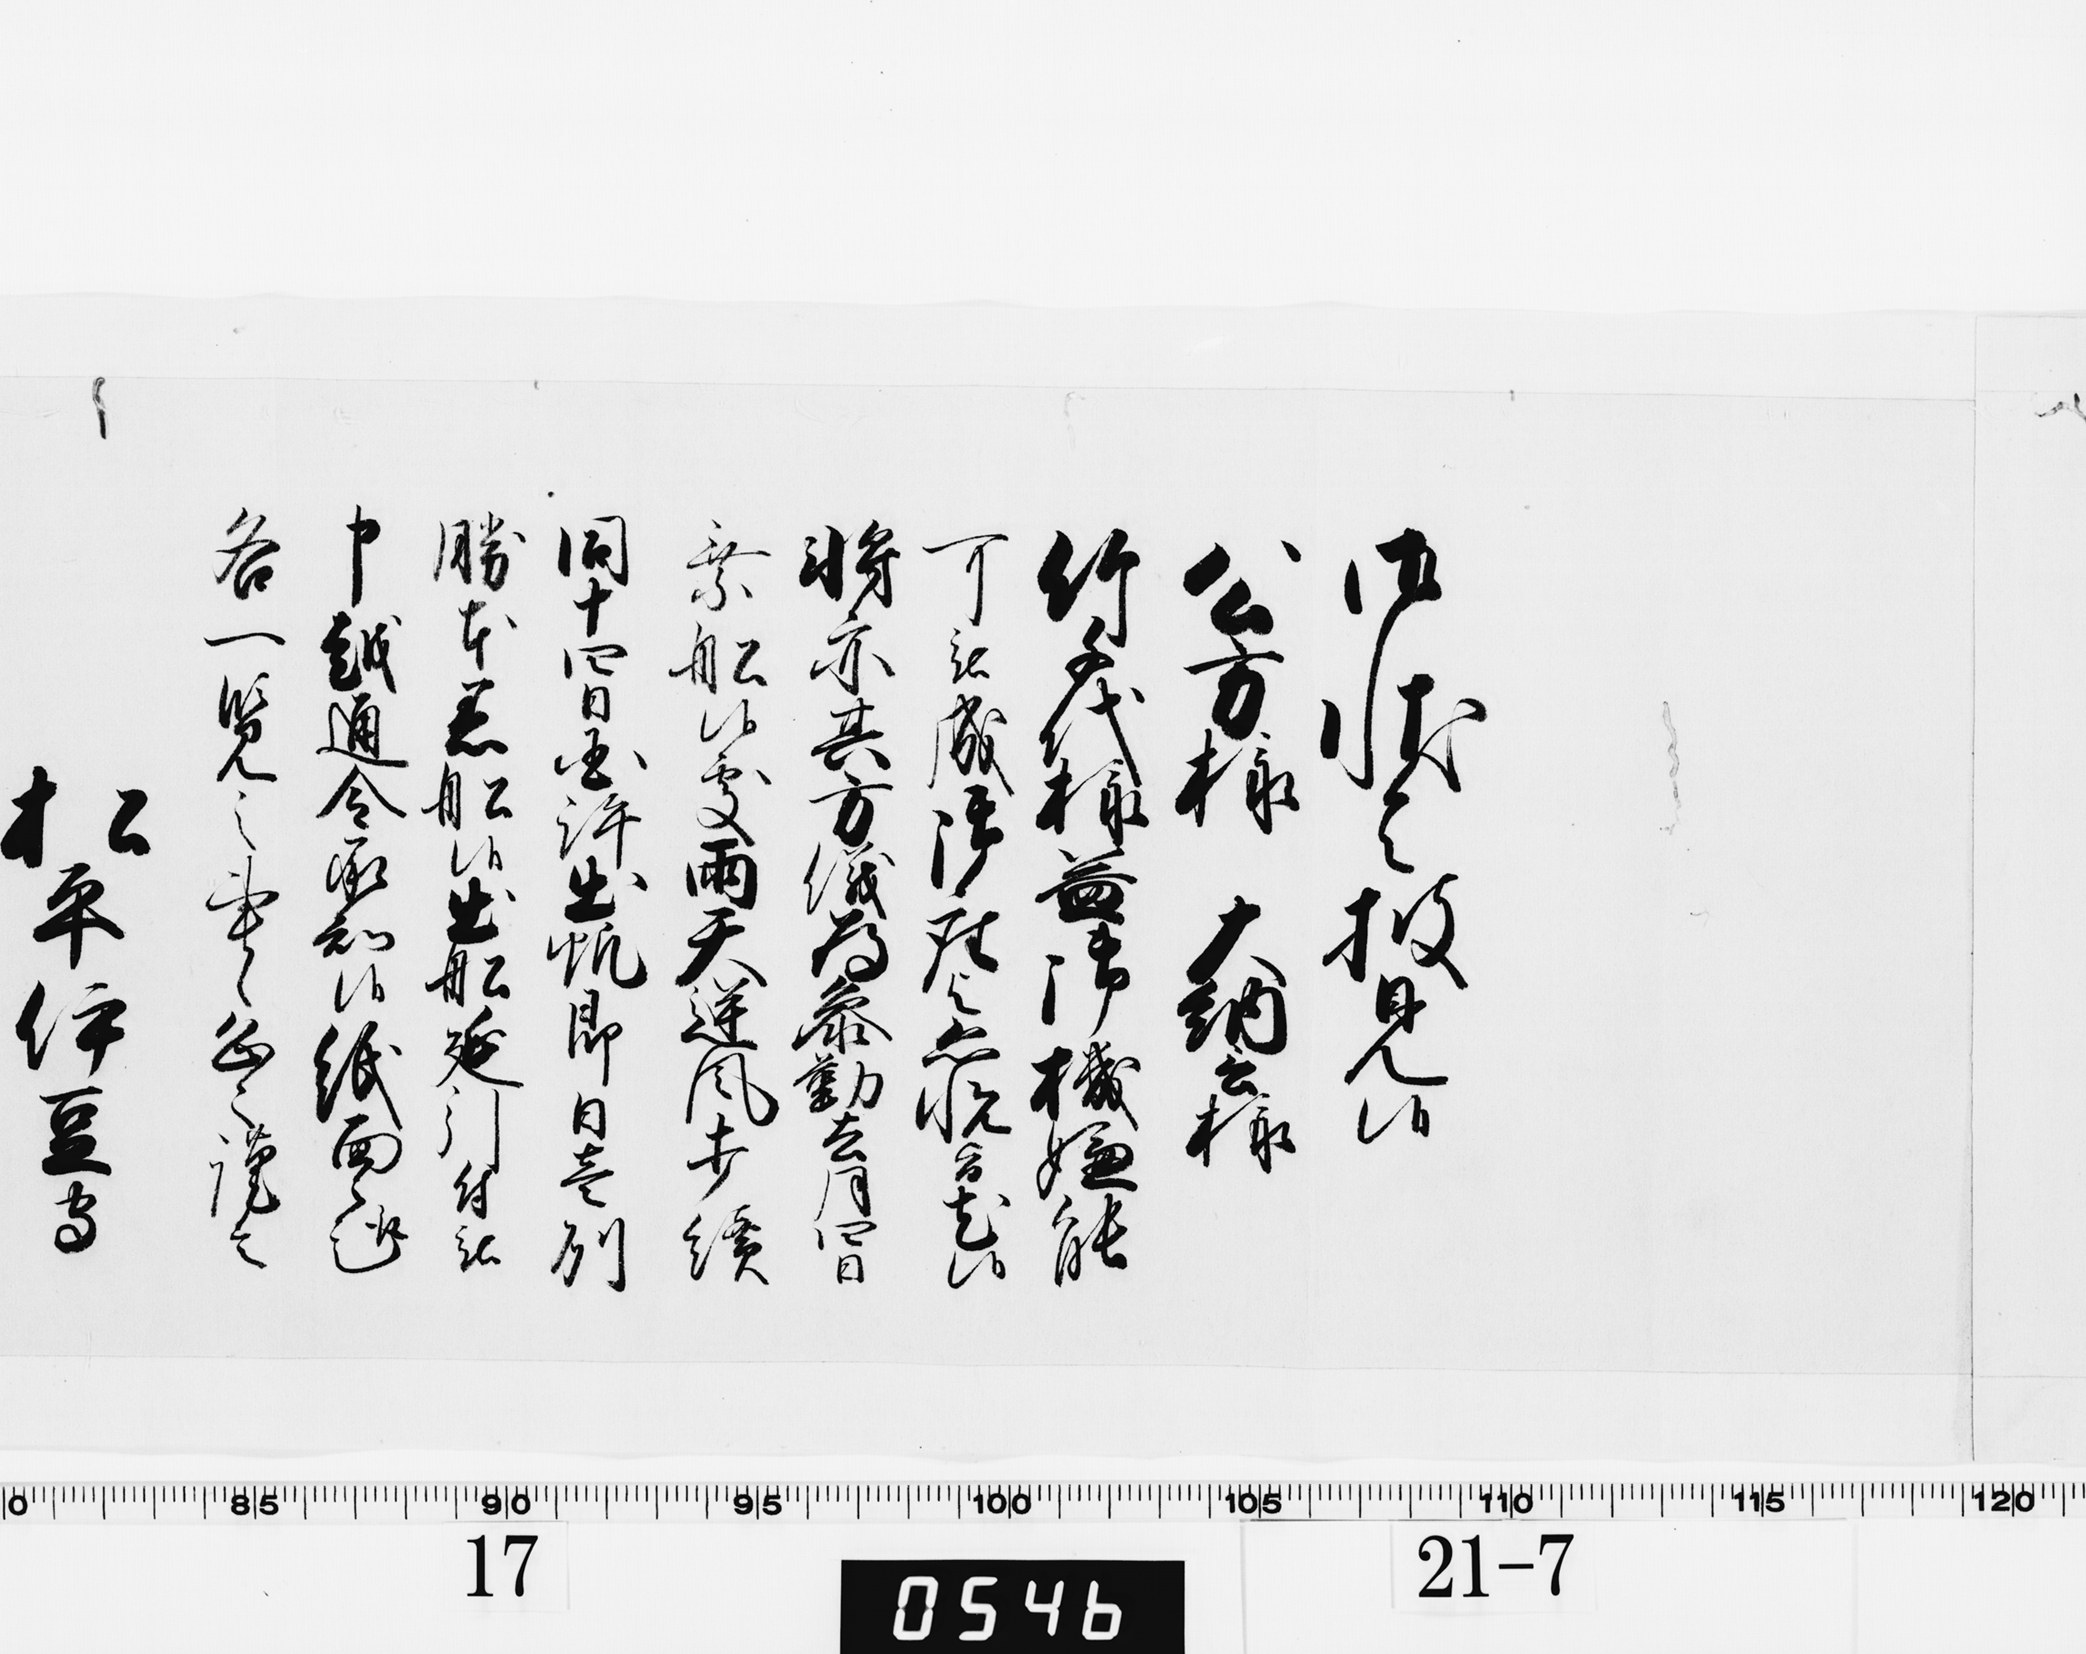 御状令披見候
公方様 大納言様
竹千代様益御機嫌能
可被成御座与恐悦旨尤候
将亦其方儀為参勤去月四日
乗船候処雨天逆風打続
同十四日国許出帆即日壱州
勝本着船候出船延引付被
申越通令承知候紙面之趣
各一覧之事候恐々謹言
松平伊豆守
0 85 90 95 100 105 110 115 120
17
0546
21-7